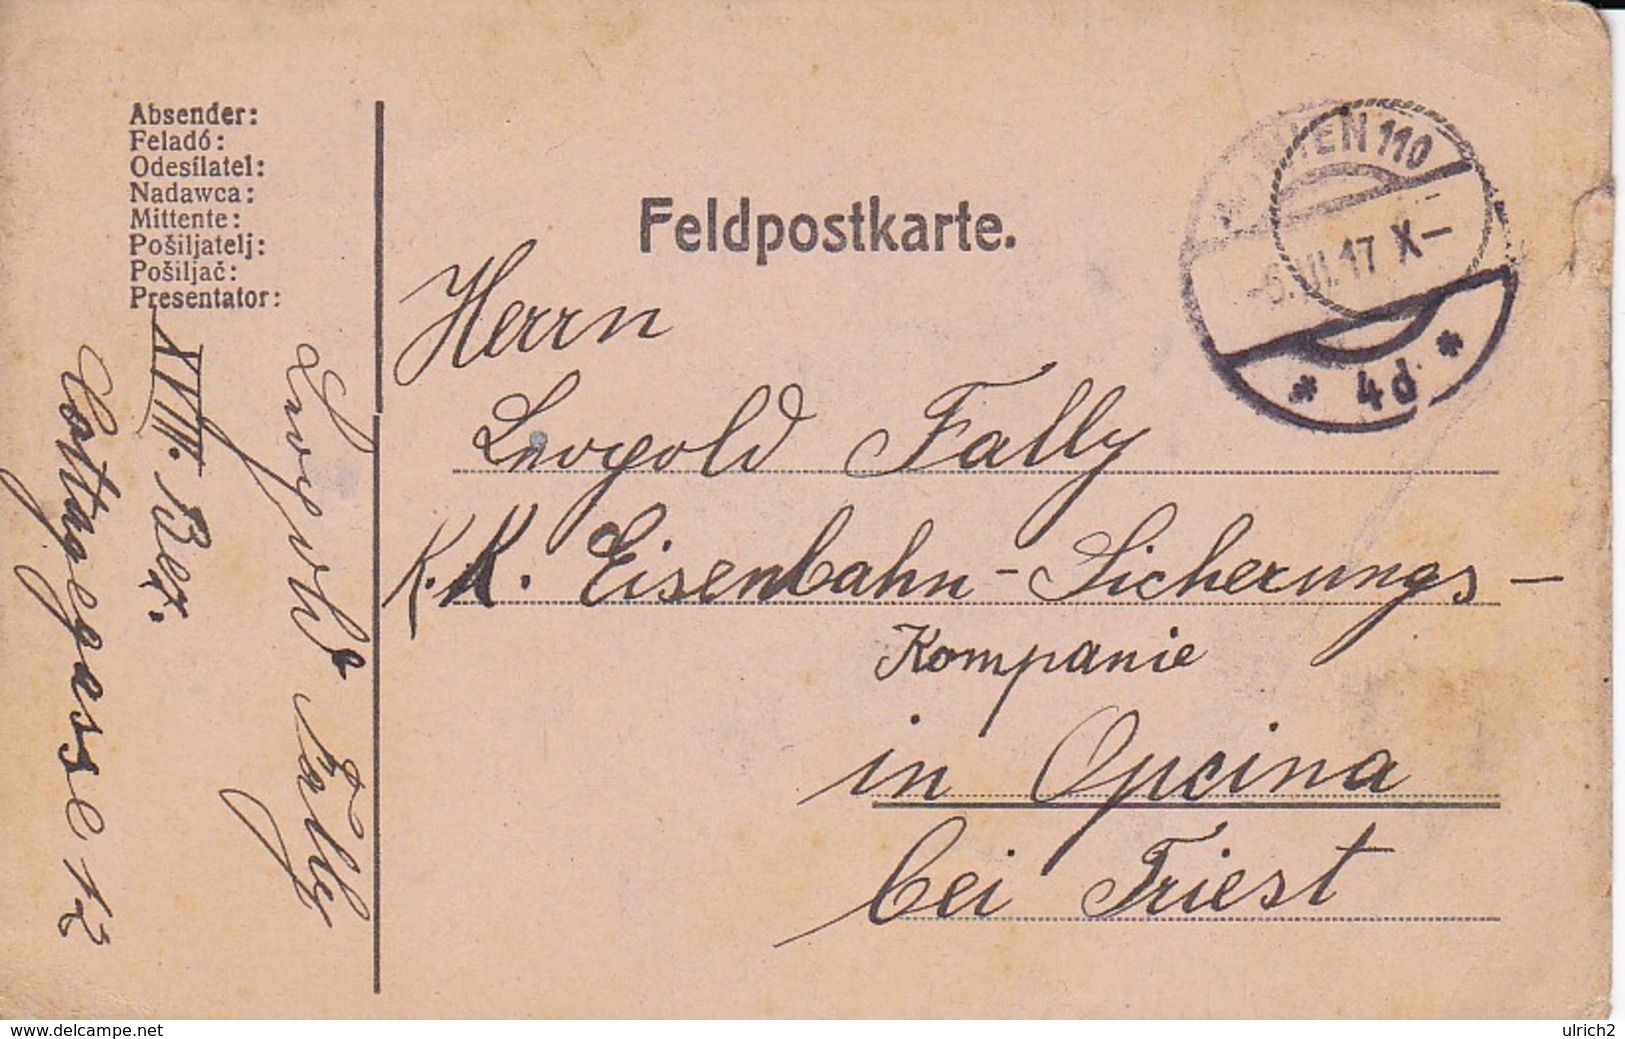 Absender:
Feladó:
Odesílatel:
Nadawca:
Mittente:
Pošiljatelj:
Pošiljač:
Presentator:
Leopold Fally
XVIII. Bez.
Cottagegasse 12
Feldpostkarte.
WIEN 110
17 X–
* 4d *
Herrn
Leopold Fally
K. K. Eisenbahn-Sicherungs-
Kompanie
in Opcina
bei Triest
www.delcampe.net
ulrich2